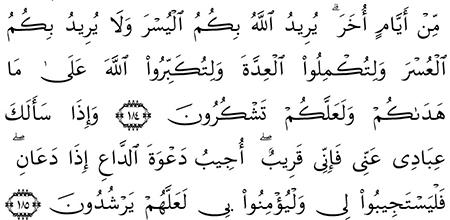 مِّنْ أَيَّامٍ أُخَرَ ۗ يُرِيدُ ٱللَّهُ بِكُمُ ٱلْيُسْرَ وَلَا يُرِيدُ بِكُمُ
ٱلْعُسْرَ وَلِتُكْمِلُوا۟ ٱلْعِدَّةَ وَلِتُكَبِّرُوا۟ ٱللَّهَ عَلَىٰ مَا
هَدَىٰكُمْ وَلَعَلَّكُمْ تَشْكُرُونَ ﴿١٨٤﴾ وَإِذَا سَأَلَكَ
عِبَادِى عَنِّى فَإِنِّى قَرِيبٌ ۖ أُجِيبُ دَعْوَةَ ٱلدَّاعِ إِذَا دَعَانِ ۖ
فَلْيَسْتَجِيبُوا۟ لِى وَلْيُؤْمِنُوا۟ بِى لَعَلَّهُمْ يَرْشُدُونَ ﴿١٨٥﴾